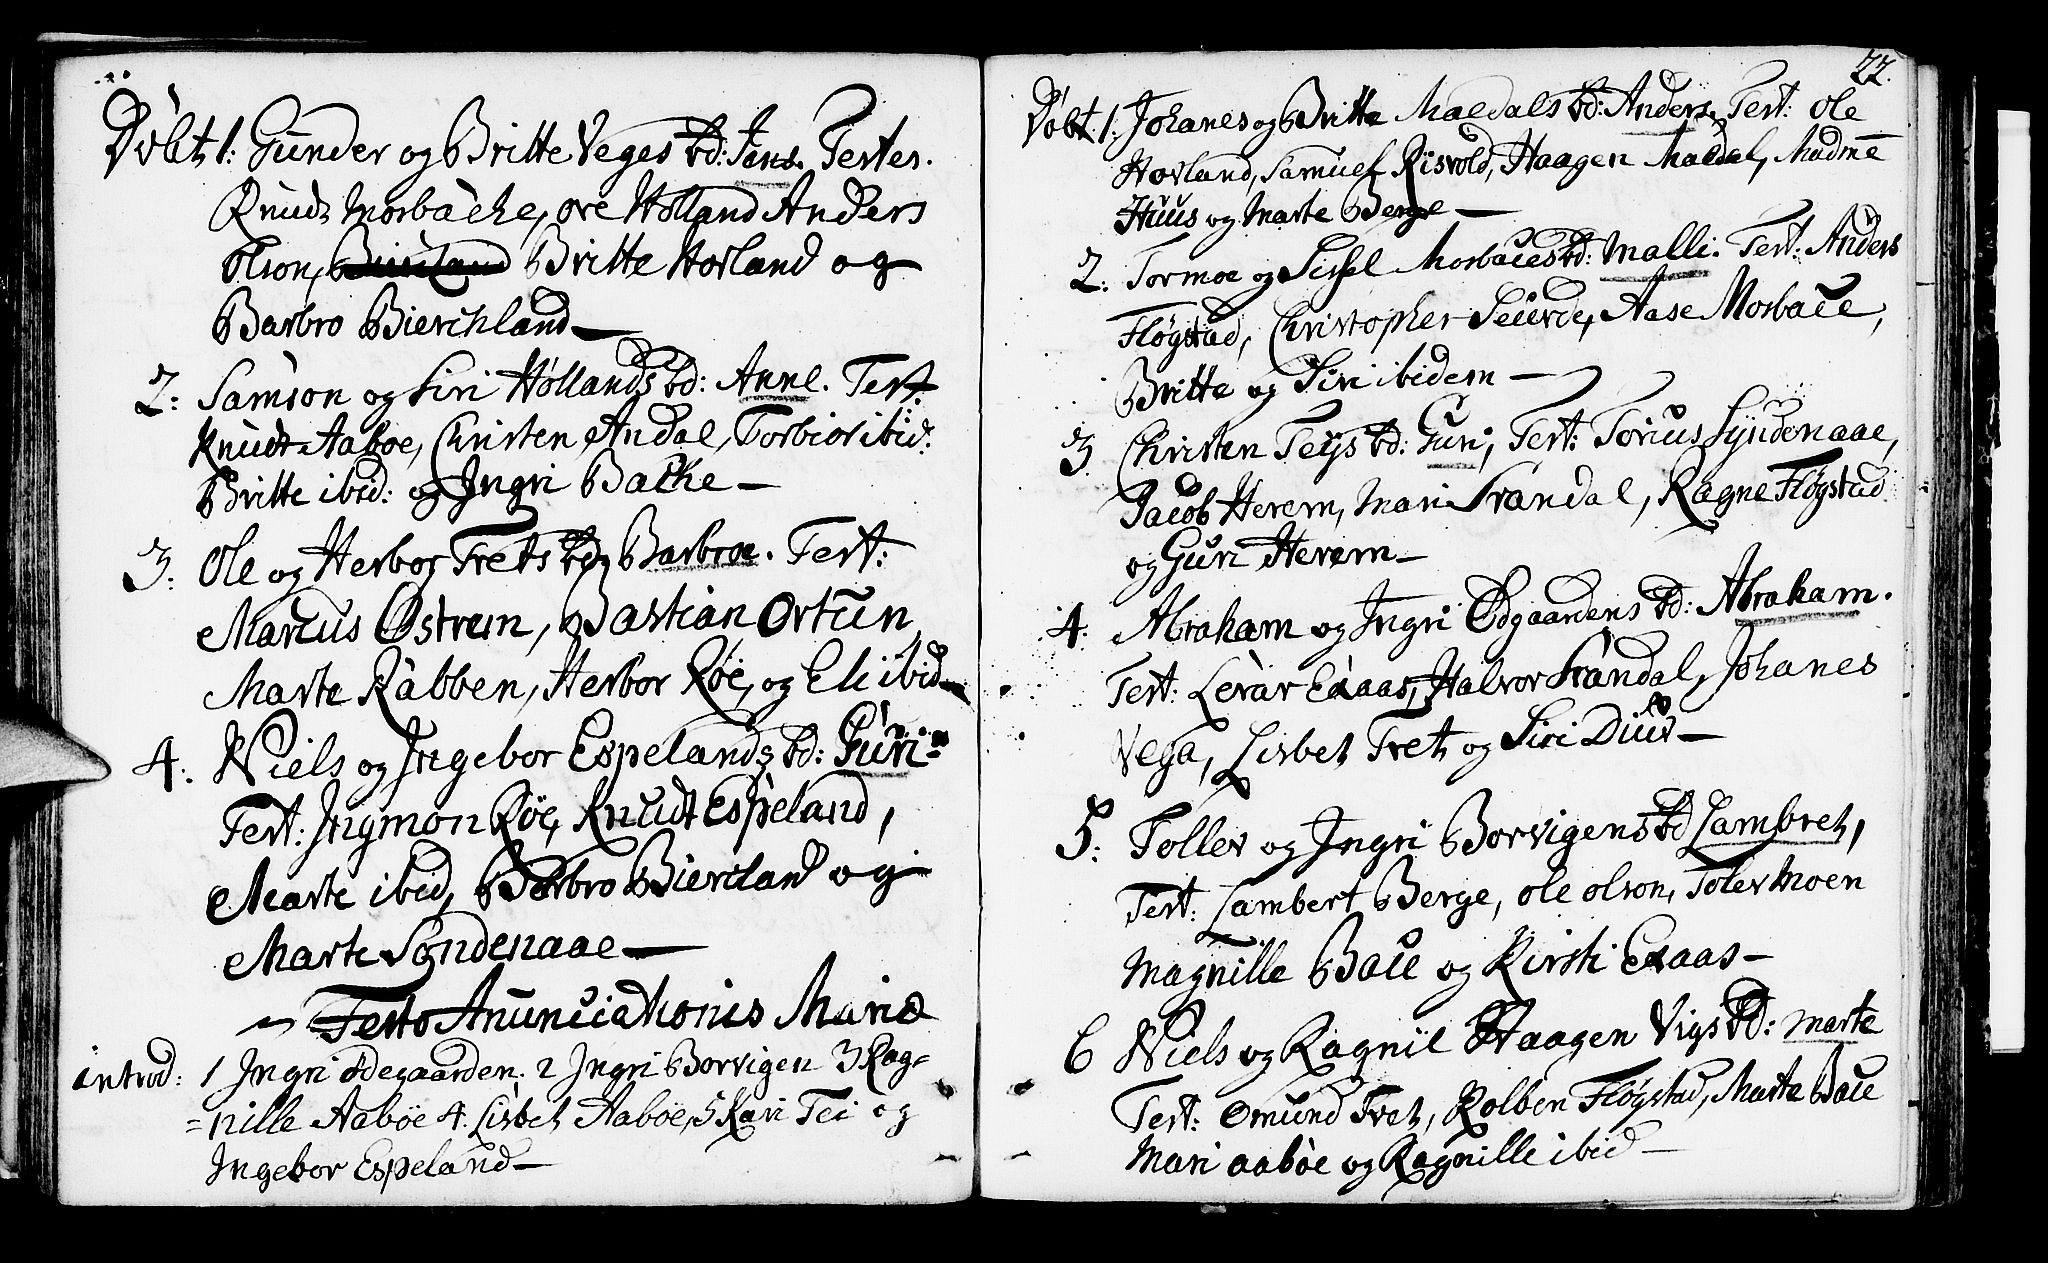 Döbt 1: Gunder og Britte Veges bd: Jens. Testes.
Knudt Morbache, ore Hölland Anders
Olson, Britte Hovland og
Barbro Bierchland —
2: Samson og Siri Höllands bd: Anne. Test.
Knudt Aaboe, Christen Andal, Torbior ibid:
Britte ibid: og Ingri Bache —
3: Ole og Herbor Trets bd Barbroe. Test:
Marcus Østrem, Bastian Ortun
Marte Rabben, Herbor Röe, og Eli ibid
4: Niels og Ingebor Espelands bd: Guri
Test: Ingmon Röe, Knudt Espeland,
Marte ibid, Barbro Biercland og
Marte Söndenaae —
Festo Anunciationis Mariæ
introd: 1 Ingri Ödegaarden. 2 Ingri Borvigen 3 Rag=
=nille Aaböe 4. Lisbet Aaböe, 5 Kari Tei og
Ingebor Espeland —
22.
Döbt 1: Johanes og Britte Maldals bd: Anders. Test: Ole
Hovland, Samuel Risvold, Haagen Maldal, Madme
Huus og Marte Berge —
2: Tormoe og Sissel Morbaces bd: Malli. Test: Anders
Flögstad, Christopher Seierde, Aase Morbace,
Britte og Siri ibidem —
3 Christen Teijs bd: Guri, Test: Torius Syndenaae,
Jacob Herem, Mari Strandal, Ragne Flögstad
og Guri Herem —
4: Abraham og Ingri Ødgaardens bd: Abraham.
Test: Halvor Srandal, Johanes
Vega, Lisbet Tret og Siri Diur —
5: Tollev og Ingri Borvigens bd Lambret,
Test: Lambert Berge, Ole Olson, Tolev Moen
Magnille Bace og Kirsti Exaas —
6 Niels og Ragnil Haagen Vigs bd: Marte
Test: Omund Tret, Kolben Flögstad, Marte Bace
Mari Aaböe og Ragnille ibid —